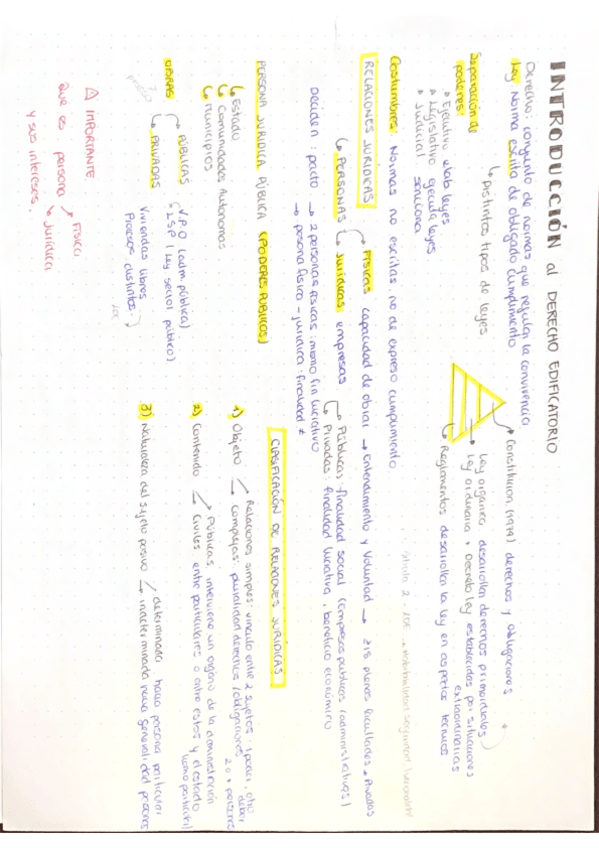 INTRODUCCIÓN al DERECHO EDIFICATORIO
Derecho: conjunto de normas que regulan la convivencia
Ley Norma escrita de obligado cumplimiento
↳ Distintos tipos de leyes
Separación de
poderes:
• Ejecutivo elab leyes
• Legislativo ejecuta leyes
• Judicial sanciona
Constitución (1979) derechos y obligaciones
Ley orgánica desarrollan derechos primordiales
Ley ordinaria + Decreto ley establecidas por situaciones
extraordinarias
Reglamentos desarrollan la ley en aspectos técnicos
Costumbres: Normas no escritas, no de expreso cumplimiento
RELACIONES JURÍDICAS
↳ PERSONAS
FÍSICAS capacidad de obrar → entendimiento y voluntad → ≥18 plenas facultades
JURÍDICAS empresas
Públicas: finalidad social (empresas públicas (administrativas)
Privadas: finalidad lucrativa, beneficio económico
Deciden: pacto → 2 personas físicas: mismo fin lucrativo
→ persona física - jurídica: finalidad ≠
PERSONA JURÍDICA PÚBLICA (PODERES PÚBLICOS)
↳ Estado
↳ Comunidades Autónomas
↳ Municipios
OBRAS
PÚBLICAS V.P.O (adm. pública)
LSP (Ley sector público)
PRIVADAS Viviendas libres
Procesos distintos.
LOE
⚠ IMPORTANTE.
Que es persona
Física
Jurídica
y sus intereses.
CLASIFICACIÓN DE RELACIONES JURÍDICAS
1) Objeto
Relaciones simples: vínculo entre 2 sujetos 1 poder, otro
deber
Complejas: pluralidad derechos/obligaciones 2 o + personas
2) Contenido
Públicas, interviene un órgano de la administración
Civiles entre particulares o entre estos y el estado
(como particular)
3) Naturaleza del sujeto pasivo
determinado hacia persona particular
indeterminada hacia generalidad personas